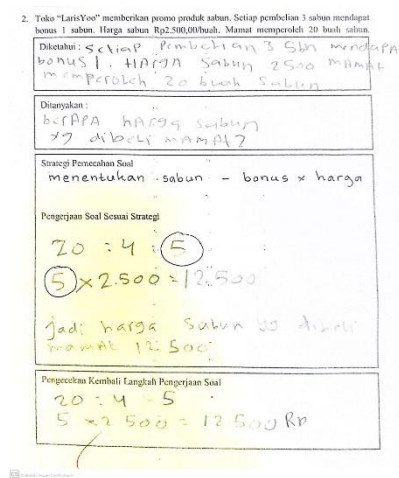 2. Toko "LarisYoo" memberikan promo produk sabun. Setiap pembelian 3 sabun mendapat
bonus 1 sabun. Harga sabun Rp2.500,00/buah. Mamat memperoleh 20 buah sabun.
Diketahui : Setiap Pembelian 3 Sbn mendapA
bonus 1. HArga Sabun 2500 MAMAt
memperoleh 20 buah Sabun
Ditanyakan :
berAPA hArga sabun
yg dibeli mAMAt?
Strategi Pemecahan Soal
menentukan sabun - bonus x harga
Pengerjaan Soal Sesuai Strategi
20 : 4 : 5
5 x 2.500 = 12.500
jadi harga Sabun yg dibeli
mamAt 12.500
Pengecekan Kembali Langkah Pengerjaan Soal
20 : 4 5
5 x 2 500 = 12 500 Rp